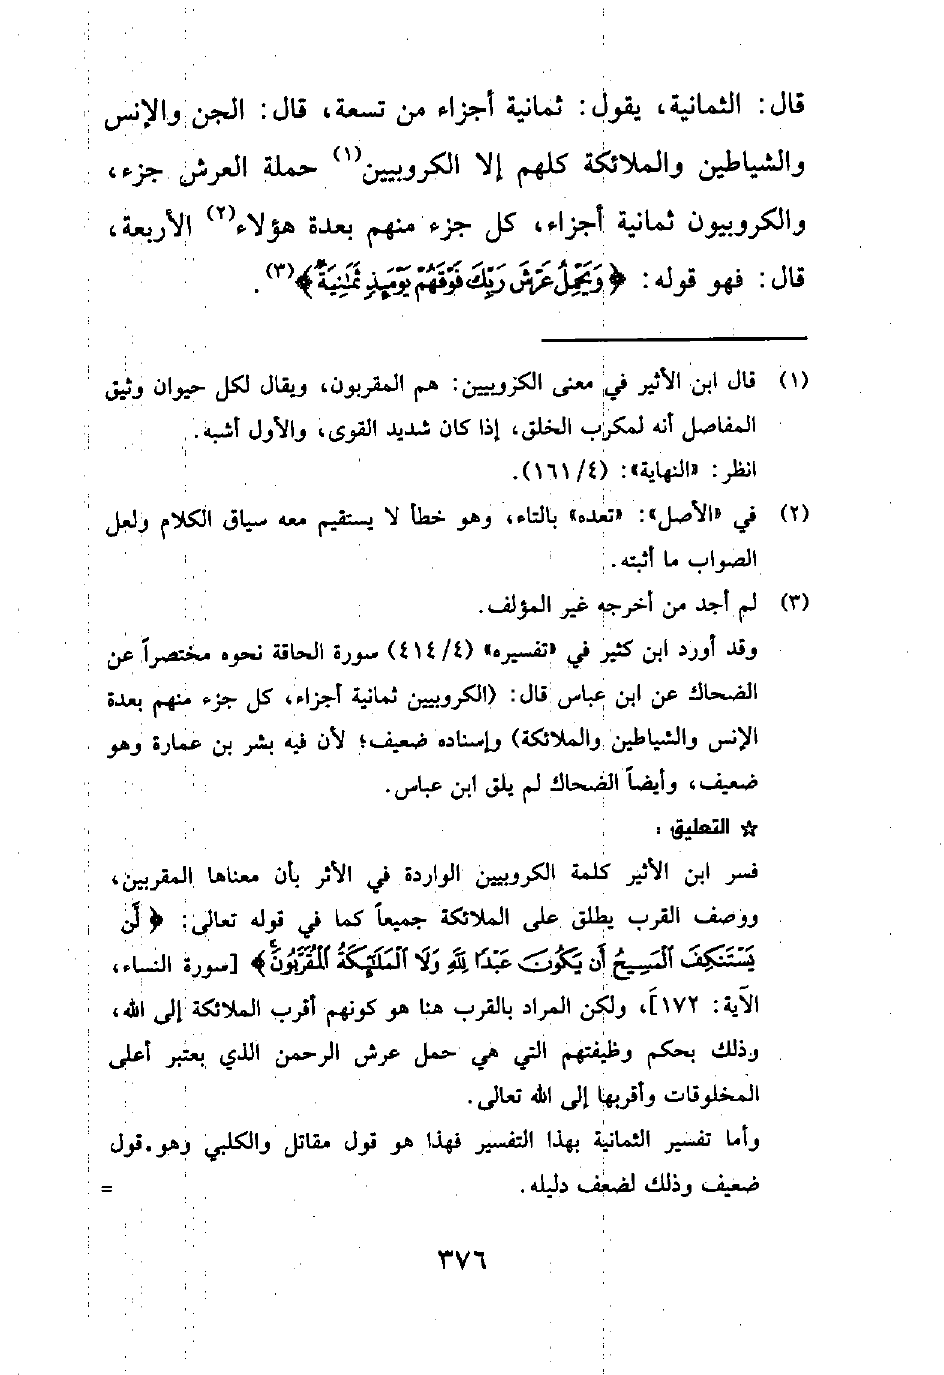 قال: الثمانية، يقول: ثمانية أجزاء من تسعة، قال: الجن والإنس
والشياطين والملائكة كلهم إلا الكروبيين(١) حملة العرش جزء،
والكروبيون ثمانية أجزاء، كل جزء منهم بعدة هؤلاء(٢) الأربعة،
قال: فهو قوله: ﴿وَيَحْمِلُ عَرْشَ رَبِّكَ فَوْقَهُمْ يَوْمَئِذٍ ثَمَٰنِيَةٌ﴾(٣).
(١) قال ابن الأثير في معنى الكروبيين: هم المقربون، ويقال لكل حيوان وثيق
المفاصل أنه لمكرب الخلق، إذا كان شديد القوى، والأول أشبه.
انظر: «النهاية»: (١٦١/٤).
(٢) في «الأصل»: «تعده» بالتاء، وهو خطأ لا يستقيم معه سياق الكلام ولعل
الصواب ما أثبته.
(٣) لم أجد من أخرجه غير المؤلف.
وقد أورد ابن كثير في «تفسيره» (٤١٤/٤) سورة الحاقة نحوه مختصراً عن
الضحاك عن ابن عباس قال: (الكروبيين ثمانية أجزاء، كل جزء منهم بعدة
الإنس والشياطين والملائكة) وإسناده ضعيف؛ لأن فيه بشر بن عمارة وهو
ضعيف، وأيضاً الضحاك لم يلق ابن عباس.
☆ التعليق:
فسر ابن الأثير كلمة الكروبيين الواردة في الأثر بأن معناها المقربين،
ووصف القرب يطلق على الملائكة جميعاً كما في قوله تعالى: ﴿لَّن
يَسْتَنكِفَ ٱلْمَسِيحُ أَن يَكُونَ عَبْدًا لِّلَّهِ وَلَا ٱلْمَلَٰٓئِكَةُ ٱلْمُقَرَّبُونَ﴾ [سورة النساء،
الآية: ١٧٢]، ولكن المراد بالقرب هنا هو كونهم أقرب الملائكة إلى الله،
وذلك بحكم وظيفتهم التي هي حمل عرش الرحمن الذي يعتبر أعلى
المخلوقات وأقربها إلى الله تعالى.
وأما تفسير الثمانية بهذا التفسير فهذا هو قول مقاتل والكلبي وهو قول
ضعيف وذلك لضعف دليله. =
٣٧٦